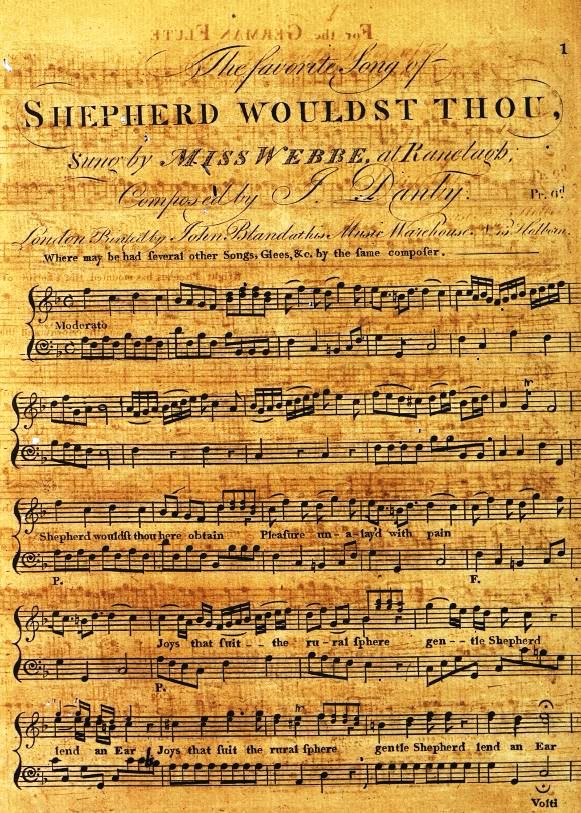 For the GERMAN FLUTE
1
The favorite Song of
SHEPHERD WOULDST THOU,
Sung by MISS WEBBE, at Ranelagh;
Composed by J. Danby.
Pr. 6d
London Printed by John Bland at his Music Warehouse No. 45 Holborn.
Where may be had ſeveral other Songs, Glees, &c. by the ſame compoſer.
Moderato
tr
Shepherd wouldſt thou here obtain Pleaſure un - a - layd with pain
P. F.
Joys that ſuit - - the ru - ral ſphere gen - - tle Shepherd
P.
tr
lend an Ear Joys that ſuit the rural ſphere gentle Shepherd lend an Ear
Volti